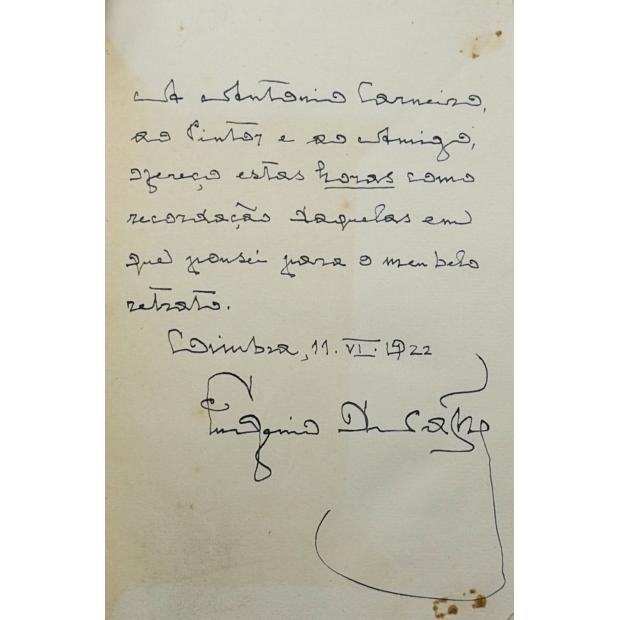 A António Carneiro,
ao Pintor e ao Amigo,
ofereço estas horas como
recordação daquelas em
que pousei para o meu belo
retrato.
Coimbra, 11. VI. 1922
Eugenio de Castro